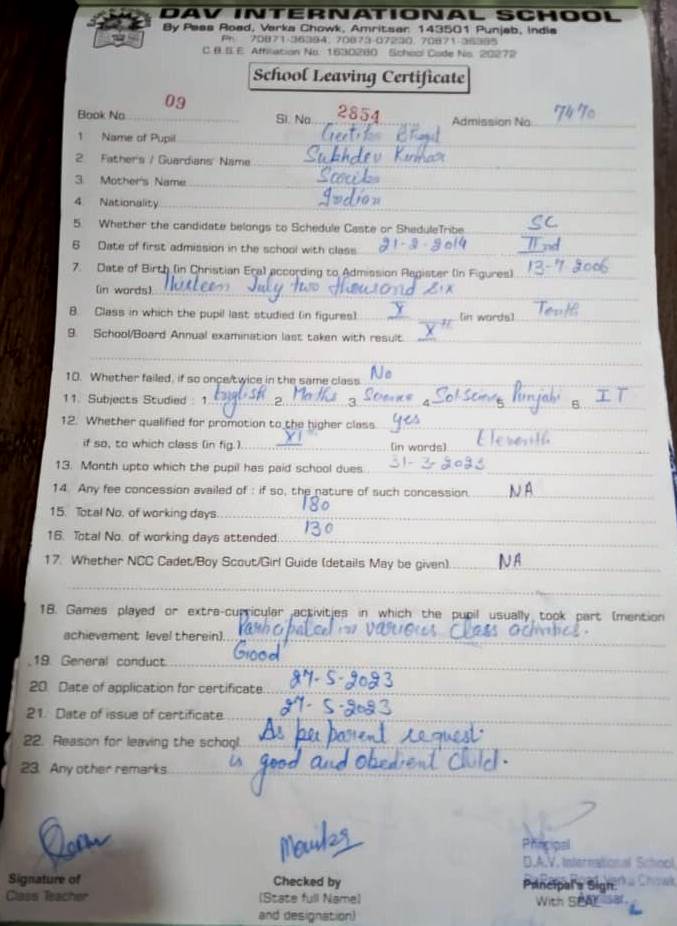 DAV INTERNATIONAL SCHOOL
By Pass Road, Verka Chowk, Amritsar. 143501 Punjab, India
Ph. 70871-36394, 70873-07230, 70871-36395
C.B.S.E. Affiliation No. 1630280 School Code No. 20272
School Leaving Certificate
Book No. 09 Sl. No. 2854 Admission No. 7470
1. Name of Pupil
2. Father's / Guardians' Name Sukhdev Kumar
3. Mother's Name
4. Nationality Indian
5. Whether the candidate belongs to Schedule Caste or SheduleTribe SC
6. Date of first admission in the school with class 21-2-2014 IInd
7. Date of Birth (in Christian Era) according to Admission Register (in Figures) 13-7-2006
(in words) Thirteen July two thousand six
8. Class in which the pupil last studied (in figures) X (in words) Tenth
9. School/Board Annual examination last taken with result Xth
10. Whether failed, if so once/twice in the same class No
11. Subjects Studied : 1. English 2. Maths 3. Science 4. Sst Science 5. Punjabi 6. IT
12. Whether qualified for promotion to the higher class yes
if so, to which class (in fig.) XIth (in words) Eleventh
13. Month upto which the pupil has paid school dues 31-3-2023
14. Any fee concession availed of : if so, the nature of such concession NA
15. Total No. of working days 180
16. Total No. of working days attended 130
17. Whether NCC Cadet/Boy Scout/Girl Guide (details May be given) NA
18. Games played or extra-curricular activities in which the pupil usually took part (mention
achievement level therein) Participated in various class activities.
19. General conduct Good
20. Date of application for certificate 27-5-2023
21. Date of issue of certificate 27-5-2023
22. Reason for leaving the school As per parent request.
23. Any other remarks is good and obedient child.
Signature of
Class Teacher
Monika
Checked by
(State full Name)
and designation)
Principal
D.A.V. International School,
Verka Chowk
Principal's Sign.
With SEAL